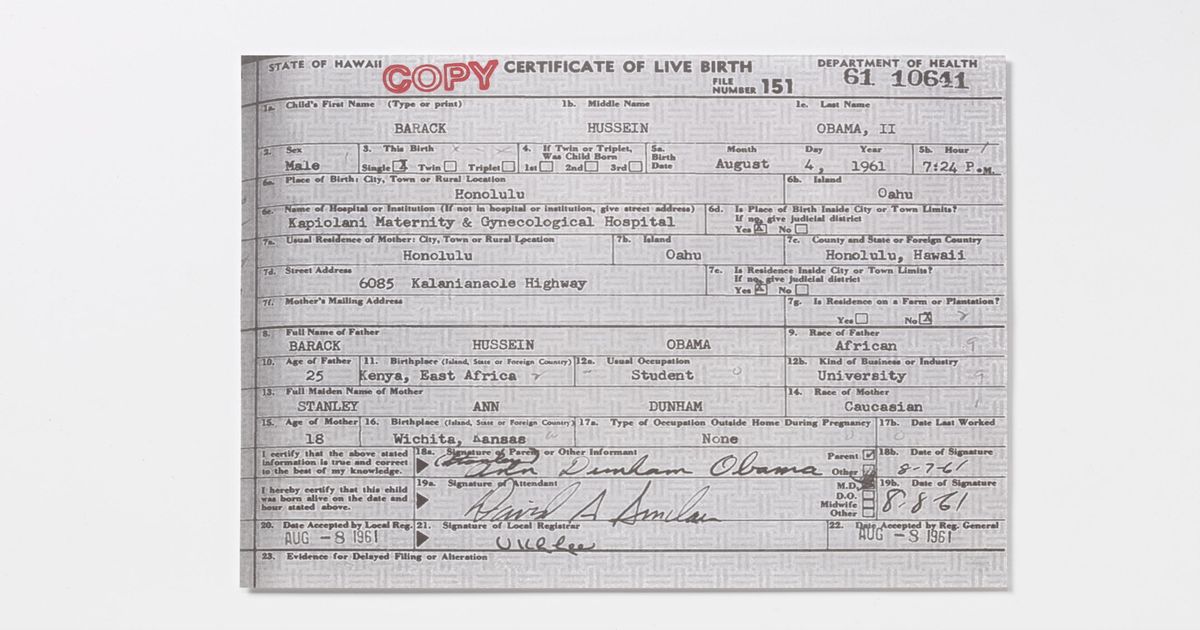 STATE OF HAWAII COPY CERTIFICATE OF LIVE BIRTH DEPARTMENT OF HEALTH
FILE NUMBER 151 61 10641
1a. Child's First Name (Type or print) 1b. Middle Name 1c. Last Name
BARACK HUSSEIN OBAMA, II
2. Sex 3. This Birth 4. If Twin or Triplet, Was Child Born 5a. Birth Date Month Day Year 5b. Hour
Male Single X Twin Triplet 1st 2nd 3rd August 4, 1961 7:24 P.M.
6a. Place of Birth: City, Town or Rural Location 6b. Island
Honolulu Oahu
6c. Name of Hospital or Institution (If not in hospital or institution, give street address) 6d. Is Place of Birth Inside City or Town Limits?
If no, give judicial district
Kapiolani Maternity & Gynecological Hospital Yes X No
7a. Usual Residence of Mother: City, Town or Rural Location 7b. Island 7c. County and State or Foreign Country
Honolulu Oahu Honolulu, Hawaii
7d. Street Address 7e. Is Residence Inside City or Town Limits?
If no, give judicial district
6085 Kalanianaole Highway Yes X No
7f. Mother's Mailing Address 7g. Is Residence on a Farm or Plantation?
Yes No X
8. Full Name of Father 9. Race of Father
BARACK HUSSEIN OBAMA African
10. Age of Father 11. Birthplace (Island, State or Foreign Country) 12a. Usual Occupation 12b. Kind of Business or Industry
25 Kenya, East Africa Student University
13. Full Maiden Name of Mother 14. Race of Mother
STANLEY ANN DUNHAM Caucasian
15. Age of Mother 16. Birthplace (Island, State or Foreign Country) 17a. Type of Occupation Outside Home During Pregnancy 17b. Date Last Worked
18 Wichita, Kansas None
I certify that the above stated information is true and correct to the best of my knowledge. 18a. Signature of Parent or Other Informant Parent Other 18b. Date of Signature
(Stanley) Ann Dunham Obama 8-7-61
I hereby certify that this child was born alive on the date and hour stated above. 19a. Signature of Attendant M.D. D.O. Midwife Other 19b. Date of Signature
David A Sinclair 8-8-61
20. Date Accepted by Local Reg. 21. Signature of Local Registrar 22. Date Accepted by Reg. General
AUG -8 1961 U K L Lee AUG -8 1961
23. Evidence for Delayed Filing or Alteration